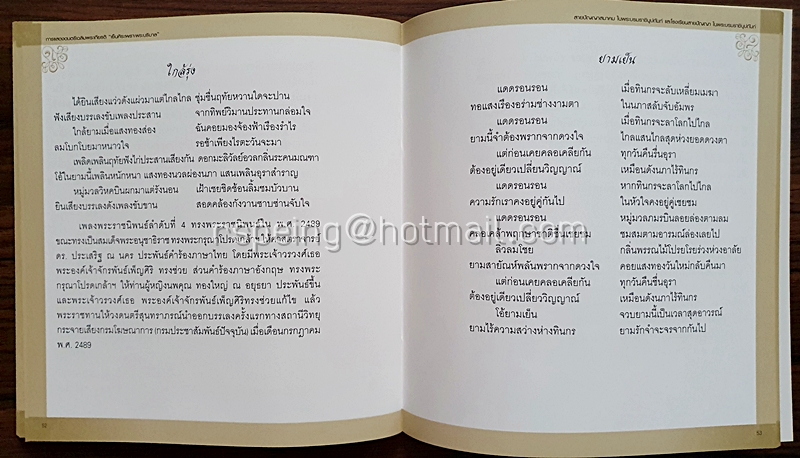 การแสดงดนตรีเฉลิมพระเกียรติ "เย็นศิระเพราะพระบริบาล"
ใกล้รุ่ง
ได้ยินเสียงแว่วดังแผ่วมาแต่ไกลไกล ชุ่มชื่นฤทัยหวานใดจะปาน
ฟังเสียงบรรเลงขับเพลงประสาน จากทิพย์วิมานประทานกล่อมใจ
ใกล้ยามเมื่อแสงทองส่อง ฉันคอยมองจ้องฟ้าเรืองรำไร
ลมโบกโบยมาหนาวใจ รอช้าเพียงไรตะวันจะมา
เพลิดเพลินฤทัยฟังไก่ประสานเสียงกัน ดอกมะลิวัลย์อวลกลิ่นระคนมณฑา
โอ้ในยามนี้เพลินหนักหนา แสงทองนวลผ่องนภา แสนเพลินอุราสำราญ
หมู่มวลวิหคบินผกมาแต่รังนอน เฝ้าเชยชิดซ้อนลิ้มชมบัวบาน
ยินเสียงบรรเลงดังเพลงขับขาน สอดคล้องกังวานซาบซ่านจับใจ
เพลงพระราชนิพนธ์ลำดับที่ 4 ทรงพระราชนิพนธ์ใน พ.ศ. 2489
ขณะทรงเป็นสมเด็จพระอนุชาธิราช ทรงพระกรุณาโปรดเกล้าฯ ให้ศาสตราจารย์
ดร. ประเสริฐ ณ นคร ประพันธ์คำร้องภาษาไทย โดยมีพระเจ้าวรวงศ์เธอ
พระองค์เจ้าจักรพันธ์เพ็ญศิริ ทรงช่วย ส่วนคำร้องภาษาอังกฤษ ทรงพระ
กรุณาโปรดเกล้าฯ ให้ท่านผู้หญิงนพคุณ ทองใหญ่ ณ อยุธยา ประพันธ์ขึ้น
และพระเจ้าวรวงศ์เธอ พระองค์เจ้าจักรพันธ์เพ็ญศิริทรงช่วยแก้ไข แล้ว
พระราชทานให้วงดนตรีสุนทราภรณ์นำออกบรรเลงครั้งแรกทางสถานีวิทยุ
กระจายเสียงกรมโฆษณาการ (กรมประชาสัมพันธ์ปัจจุบัน) เมื่อเดือนกรกฎาคม
พ.ศ. 2489
52
สายปัญญาสมาคม ในพระบรมราชินูปถัมภ์ และโรงเรียนสายปัญญา ในพระบรมราชินูปถัมภ์
ยามเย็น
แดดรอนรอน เมื่อทินกรจะลับเหลี่ยมเมฆา
ทอแสงเรืองอร่ามช่างงามตา ในนภาสลับจับอัมพร
แดดรอนรอน เมื่อทินกรจะลาโลกไปไกล
ยามนี้จำต้องพรากจากดวงใจ ไกลแสนไกลสุดห่วงยอดดวงตา
แต่ก่อนเคยคลอเคลียกัน ทุกวันคืนรื่นอุรา
ต้องอยู่เดียวเปลี่ยววิญญาณ์ เหมือนดังนภาไร้ทินกร
แดดรอนรอน หากทินกรจะลาโลกไปไกล
ความรักเราคงอยู่คู่กันไป ในหัวใจคงอยู่คู่เชยชม
แดดรอนรอน หมู่มวลภมรบินลอยล่องตามลม
คลอเคล้าพฤกษาชาติชื่นเชยชม ชมสมตามอารมณ์ล่องเลยไป
ลิ่วลมโชย กลิ่นพรรณไม้โปรยโรยร่วงห่วงอาลัย
ยามสายัณห์พลันพรากจากดวงใจ คอยแสงทองวันใหม่กลับคืนมา
แต่ก่อนเคยคลอเคลียกัน ทุกวันคืนชื่นอุรา
ต้องอยู่เดียวเปลี่ยววิญญาณ์ เหมือนดังนภาไร้ทินกร
โอ้ยามเย็น จวบยามนี้เป็นเวลาสุดอาวรณ์
ยามไร้ความสว่างห่างทินกร ยามรักจำจะจรจากกันไป
53
cspeing@hotmail.com